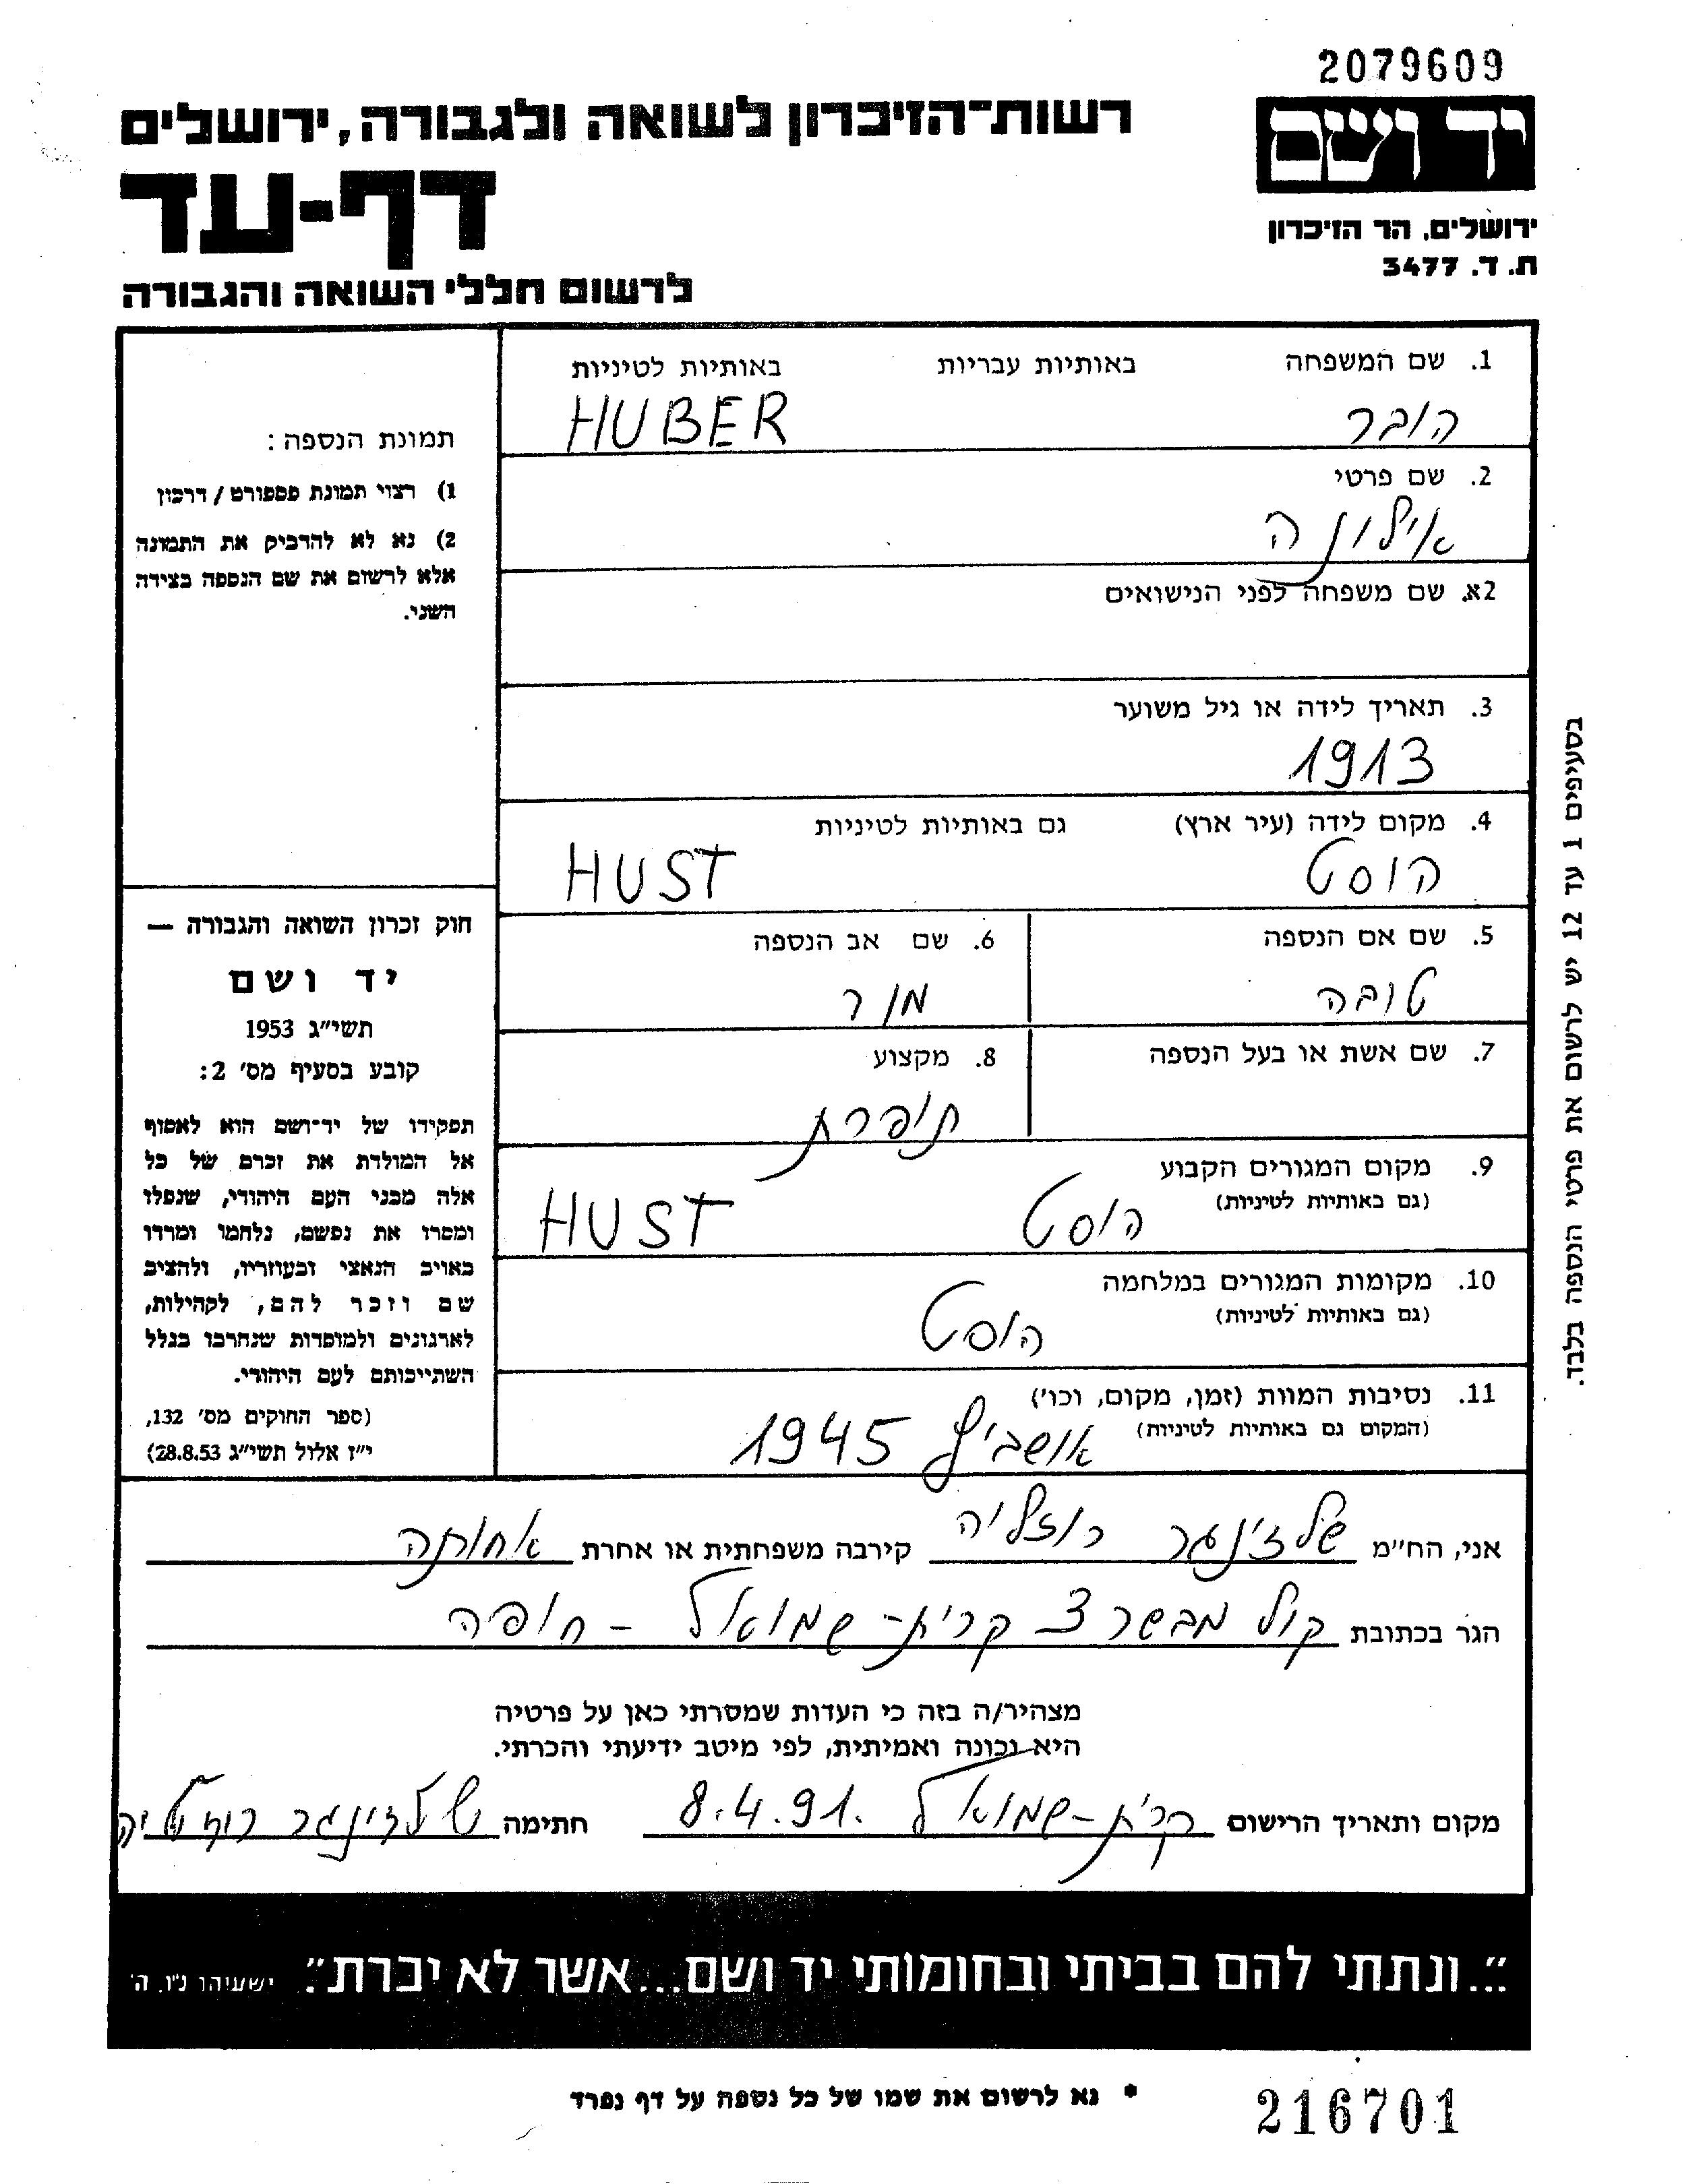 2079609
רשות־הזיכרון לשואה ולגבורה, ירושלים
יד ושם
דף-עד
ירושלים, הר הזיכרון
ת. ד. 3477
לרשום חללי השואה והגבורה
1. שם המשפחה באותיות עבריות באותיות לטיניות
הובר HUBER
2. שם פרטי
אילונה
2א. שם משפחה לפני הנישואים
3. תאריך לידה או גיל משוער
1913
4. מקום לידה (עיר ארץ) גם באותיות לטיניות
הוסט HUST
5. שם אם הנספה 6. שם אב הנספה
טובה
7. שם אשת או בעל הנספה 8. מקצוע
תופרת
9. מקום המגורים הקבוע
(גם באותיות לטיניות)
הוסט HUST
10. מקומות המגורים במלחמה
(גם באותיות לטיניות)
הוסט
11. נסיבות המוות (זמן, מקום, וכו')
(המקום גם באותיות לטיניות)
אושביץ 1945
תמונת הנספה:
1) רצוי תמונת פספורט / דרכון
2) נא לא להדביק את התמונה
אלא לרשום את שם הנספה בצידה
השני.
חוק זכרון השואה והגבורה —
יד ושם
תשי"ג 1953
קובע בסעיף מס' 2:
תפקידו של יד־ושם הוא לאסוף
אל המולדת את זכרם של כל
אלה מבני העם היהודי, שנפלו
ומסרו את נפשם, נלחמו ומרדו
באויב הנאצי ובעוזריו, ולהציב
שם וזכר להם, לקהילות,
לארגונים ולמוסדות שנחרבו בגלל
השתייכותם לעם היהודי.
(ספר החוקים מס' 132,
י"ז אלול תשי"ג 28.8.53)
בסעיפים 1 עד 12 יש לרשום את פרטי הנספה בלבד.
אני, הח"מ שלזינגר רוזליה קירבה משפחתית או אחרת אחותה
הגר בכתובת קול מבשר 3 קרית-שמואל - חיפה
מצהיר/ה בזה כי העדות שמסרתי כאן על פרטיה
היא נכונה ואמיתית, לפי מיטב ידיעתי והכרתי.
מקום ותאריך הרישום קרית-שמואל 8.4.91. חתימה שלזינגר רוזליה
"...ונתתי להם בביתי ובחומותי יד ושם...אשר לא יכרת". ישעיהו נ"ו, ה'
* נא לרשום את שמו של כל נספה על דף נפרד
216701